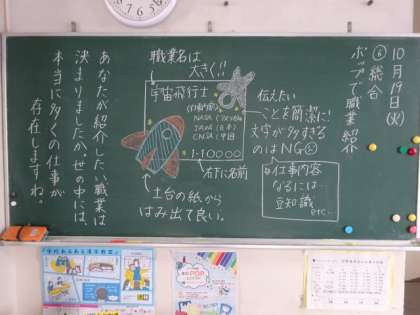 10月19日(火)
⑥総合
ポップで職業紹介
職業名は
大きく!!
宇宙飛行士
NASA
JAXA(日本)
CNSA(中国)
1-10000
右下に名前
土台の紙から
はみ出て良い。
伝えたい
ことを簡潔に!
文字が多すぎる
のはNG
仕事内容
なるには…
豆知識
etc…
あなたが紹介したい職業は
決まりましたか。世の中には、
本当に多くの仕事が
存在しますね。
POP